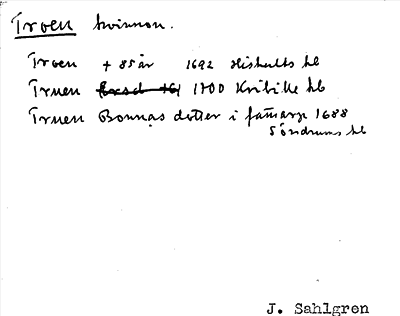 Troen kvinnon.
Troen + 85 år 1692 Hishults kb
Truen 1700 Kvibille kb
Truen Bonnas dotter i 1688
Söndrums kb
J. Sahlgren